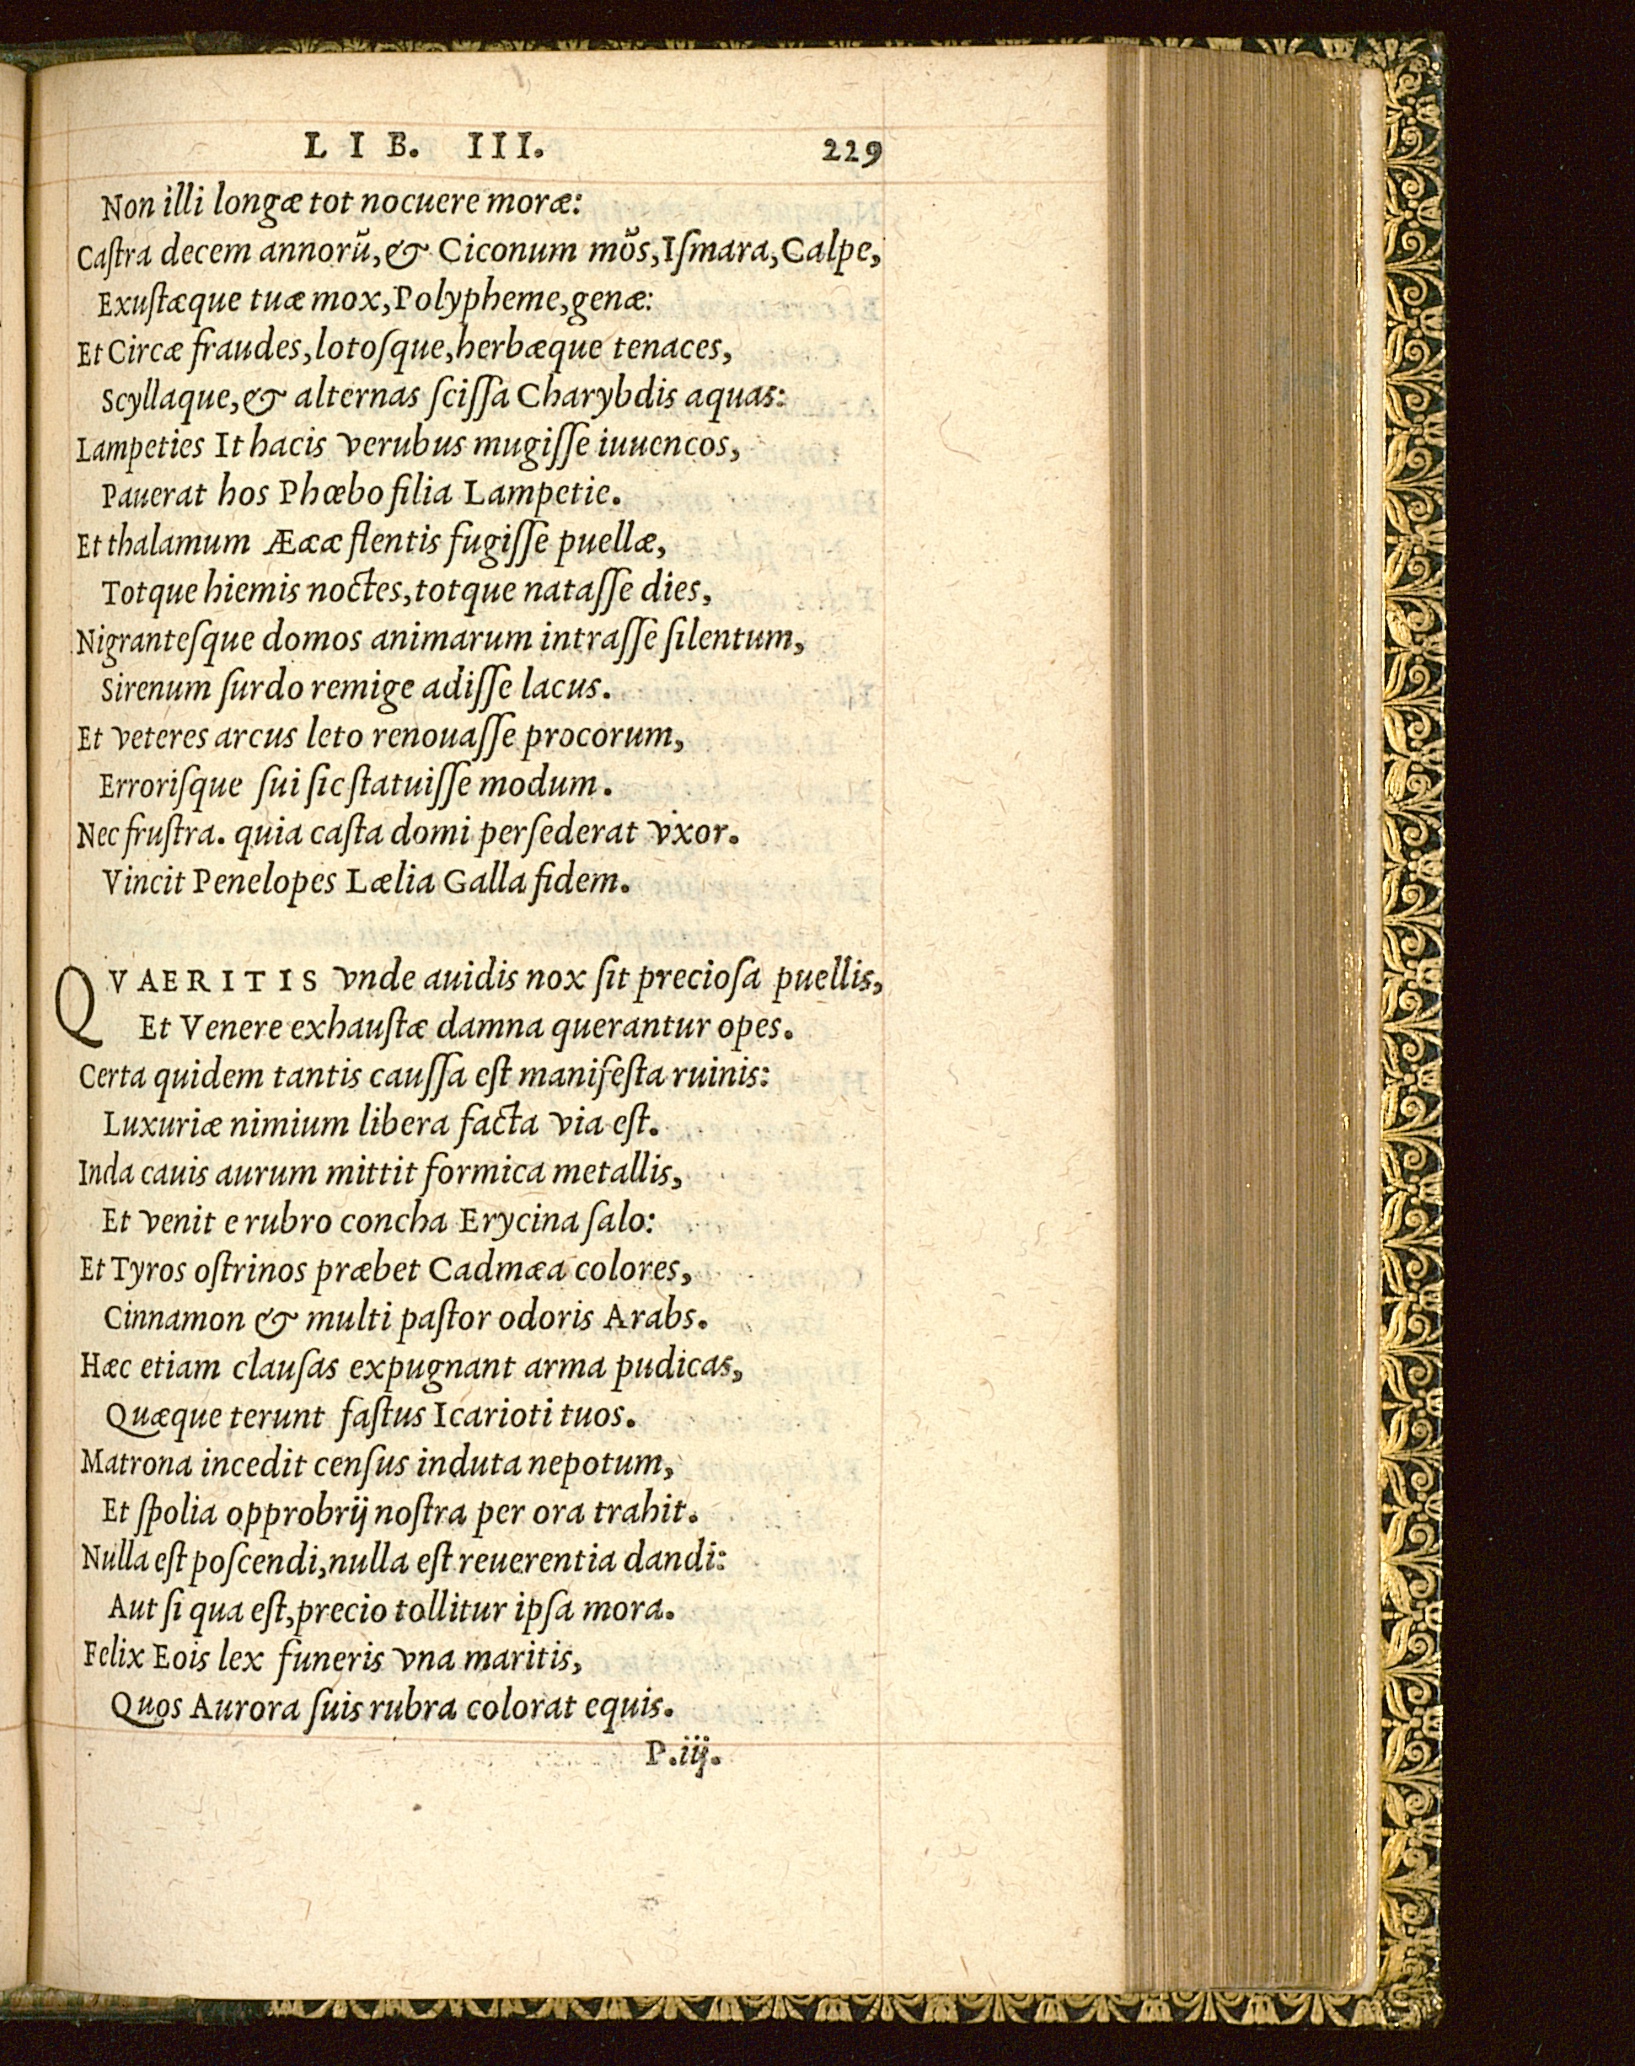 LIB. III. 229
Non illi longæ tot nocuere moræ:
Caſtra decem annorũ, & Ciconum mõs, Iſmara, Calpe,
Exuſtæque tuæ mox, Polypheme, genæ:
Et Circæ fraudes, lotoſque, herbæque tenaces,
Scyllaque, & alternas ſciſſa Charybdis aquas:
Lampeties Ithacis verubus mugiſſe iuuencos,
Pauerat hos Phœbo filia Lampetie.
Et thalamum Æææ flentis fugiſſe puellæ,
Totque hiemis noctes, totque nataſſe dies,
Nigranteſque domos animarum intraſſe ſilentum,
Sirenum ſurdo remige adiſſe lacus.
Et veteres arcus leto renouaſſe procorum,
Erroriſque ſui ſic ſtatuiſſe modum.
Nec fruſtra. quia caſta domi perſederat vxor.
Vincit Penelopes Lælia Galla fidem.
QVAERITIS vnde auidis nox ſit precioſa puellis,
Et Venere exhauſtæ damna querantur opes.
Certa quidem tantis cauſſa eſt manifeſta ruinis:
Luxuriæ nimium libera facta via eſt.
Inda cauis aurum mittit formica metallis,
Et venit e rubro concha Erycina ſalo:
Et Tyros oſtrinos præbet Cadmæa colores,
Cinnamon & multi paſtor odoris Arabs.
Hæc etiam clauſas expugnant arma pudicas,
Quæque terunt faſtus Icarioti tuos.
Matrona incedit cenſus induta nepotum,
Et ſpolia opprobrij noſtra per ora trahit.
Nulla eſt poſcendi, nulla eſt reuerentia dandi:
Aut ſi qua eſt, precio tollitur ipſa mora.
Felix Eois lex funeris vna maritis,
Quos Aurora ſuis rubra colorat equis.
P.iij.